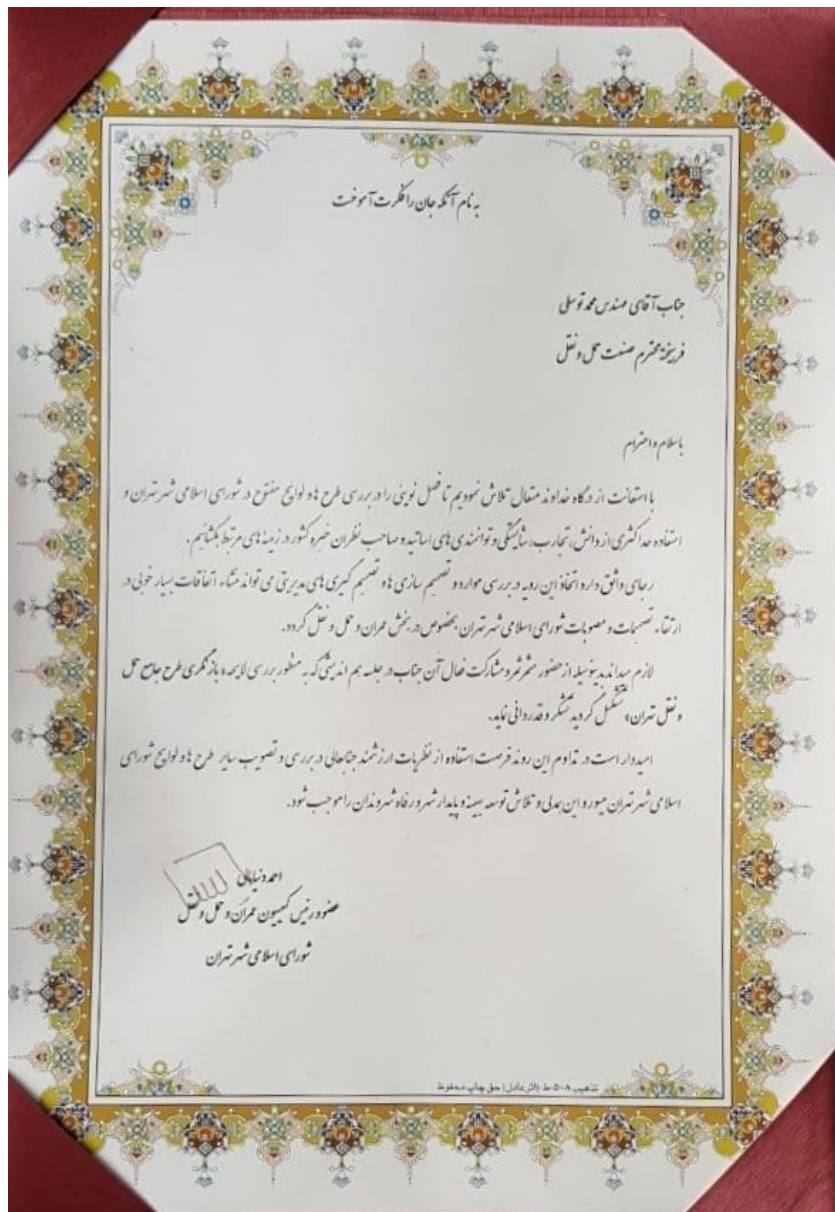 به نام آنکه جان را فکرت آموخت
جناب آقای مهندس محمد توسلی
فرهیخته محترم صنعت حمل و نقل
باسلام و احترام
با استعانت از درگاه خداوند متعال تلاش نمودیم تا فصل نوینی را در بررسی طرح ها و لوایح مفتوح در شورای اسلامی شهر تهران و
استفاده حداکثری از دانش، تجارب، شایستگی و توانمندی های اساتید و صاحب نظران خبره کشور در زمینه های مرتبط بگشائیم.
رجای واثق دارد اتخاذ این رویه در بررسی موارد و تصمیم سازی ها و تصمیم گیری های مدیریتی می تواند منشاء اتفاقات بسیار خوبی در
ارتقاء تصمیمات و مصوبات شورای اسلامی شهر تهران بخصوص در بخش عمران و حمل و نقل گردد.
لازم میداند بدینوسیله از حضور مثمرثمر و مشارکت فعال آن جناب در جلسه هم اندیشی که به منظور بررسی لایحه «بازنگری طرح جامع حمل
و نقل تهران» تشکیل گردید تشکر و قدردانی نماید.
امیدوار است در تداوم این روند فرصت استفاده از نظریات ارزشمند جنابعالی در بررسی و تصویب سایر طرح ها و لوایح شورای
اسلامی شهر تهران میسور و این همدلی و تلاش توسعه بهینه و پایدار شهر و رفاه شهروندان را موجب شود.
احمد دنیامالی
عضو و رئیس کمیسیون عمران و حمل و نقل
شورای اسلامی شهر تهران
تذهیب ۵۰۸-ط (اثر عادل) حق چاپ محفوظ